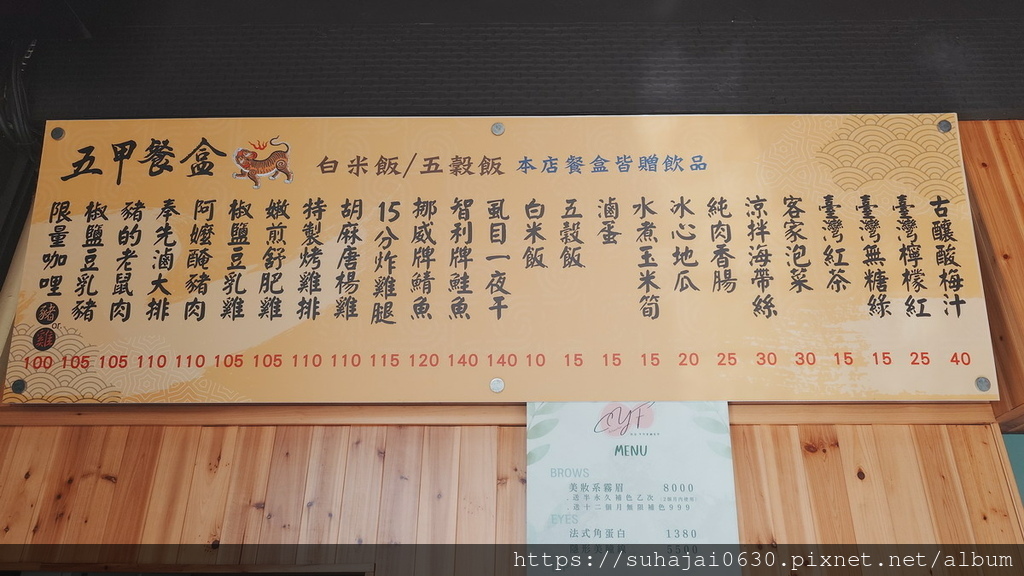 五甲餐盒
白米飯/五穀飯 本店餐盒皆贈飲品
限量咖哩 豬 or 雞 100
椒鹽豆乳豬 105
豬的老鼠肉 105
奉先滷大排 110
阿嬤醃豬肉 110
椒鹽豆乳雞 105
嫩煎舒肥雞 105
特製烤雞排 110
胡麻唐楊雞 110
15分炸雞腿 115
挪威牌鯖魚 120
智利牌鮭魚 140
虱目一夜干 140
白米飯 10
五穀飯 15
滷蛋 15
水煮玉米筍 15
冰心地瓜 20
純肉香腸 25
涼拌海帶絲 30
客家泡菜 30
臺灣紅茶 15
臺灣無糖綠 15
臺灣檸檬紅 25
古釀酸梅汁 40
CYF
MENU
BROWS
美妝系霧眉 8000
送半永久補色乙次
送十二個月無限補色999
EYES
法式角蛋白 1380
5500
https://suhajai0630.pixnet.net/album